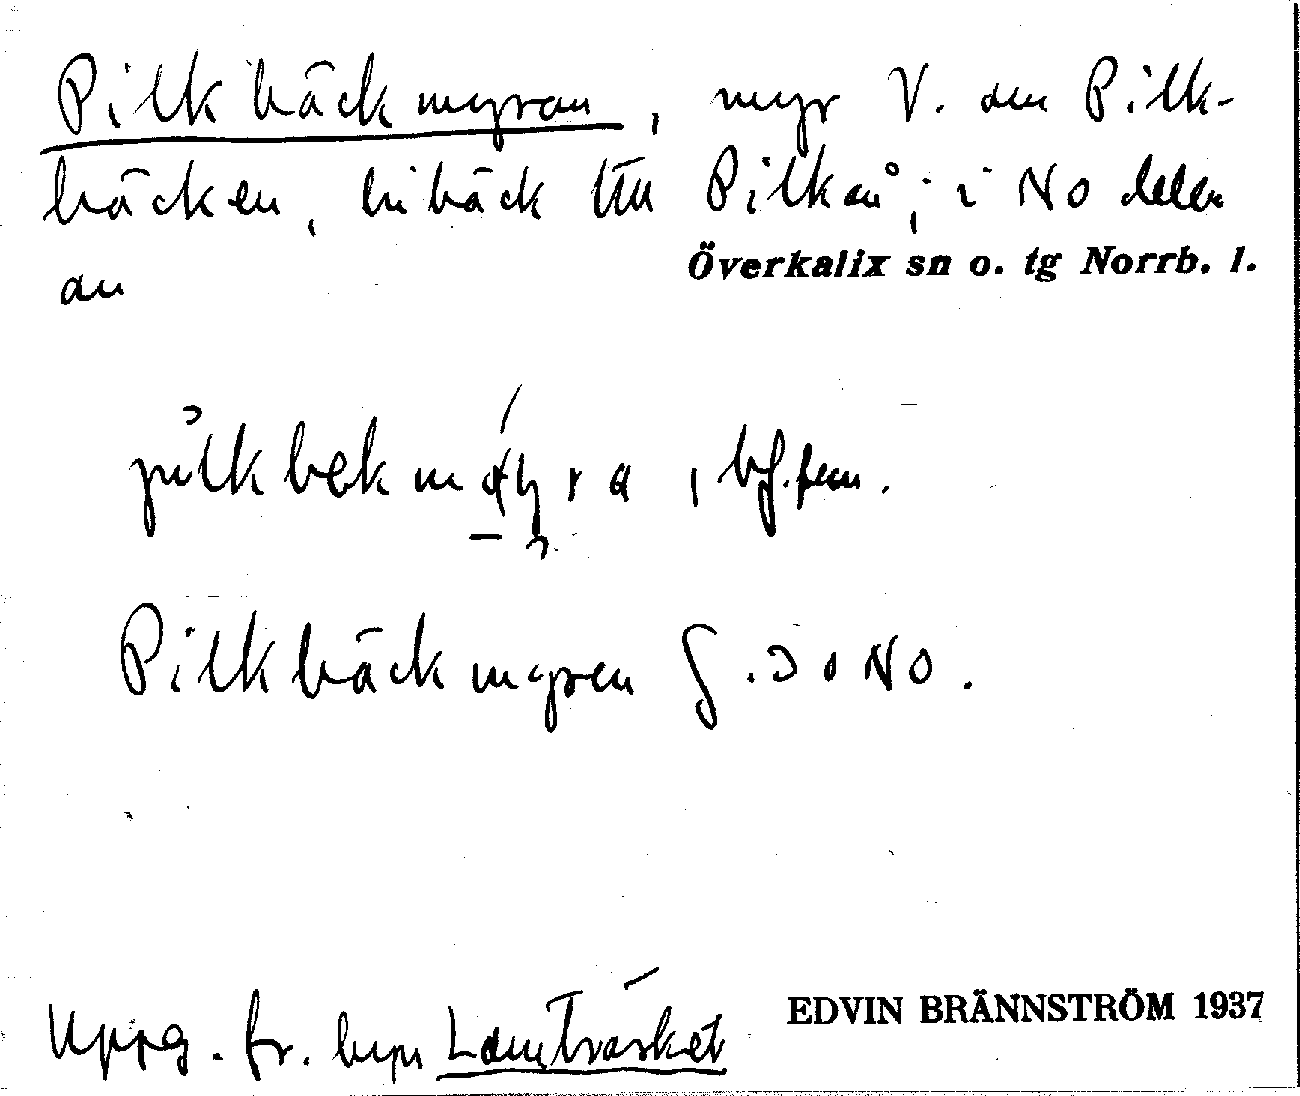 Pilkbäckmyran, myr V. om Pilk-
bäcken, bibäck till Pilkån; i NO delen
av
Överkalix sn o. tg Norrb. l.
bf. fem.
Pilkbäckmyren G. J o NO.
Uppg. fr. byn Lamträsket
EDVIN BRÄNNSTRÖM 1937